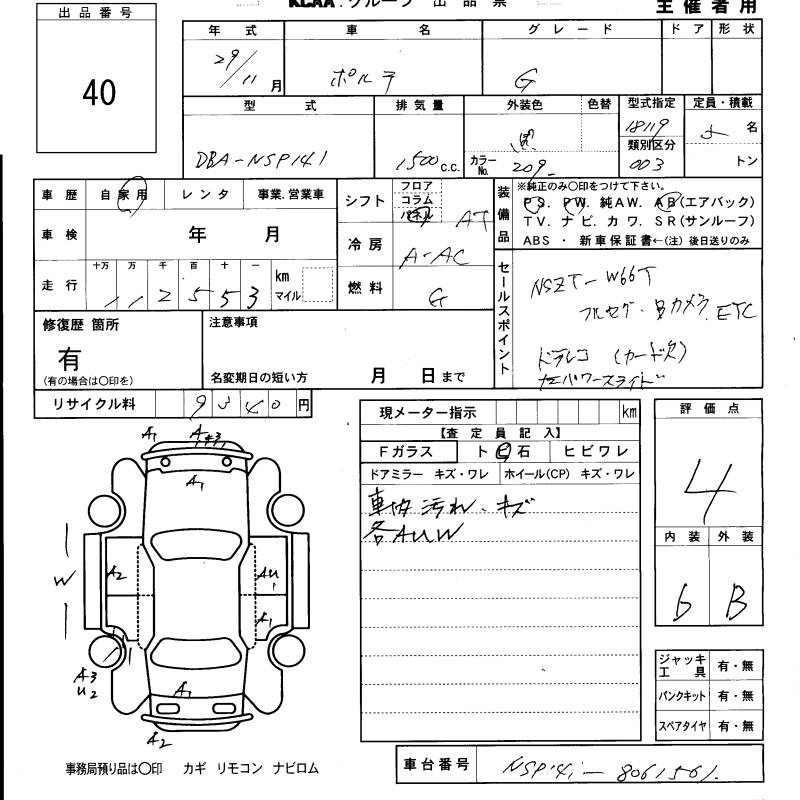 出品番号
40
KCAA.グループ 出品票
主催者用
年式 車名 グレード ドア 形状
29/11月 ポルテ G
型式 排気量 外装色 色替 型式指定 定員・積載
DBA-NSP141 1500 c.c. 黒 カラーNo. 209 18119 5名
類別区分 003 トン
車歴 自家用 レンタ 事業.営業車
車検 年 月
走行 十万 万 千 百 十 一
112553 km マイル
シフト フロア コラム パネル AT
冷房 A-AC
燃料 G
装備品 ※純正のみ○印をつけて下さい。
PS. PW. 純AW. AB(エアバック)
TV. ナビ. カワ. SR(サンルーフ)
ABS ・ 新車保証書←(注) 後日送りのみ
セールスポイント
NSZT-W66T
フルセグ・Bカメラ ETC
ドラレコ (カード欠)
左パワースライド
修復歴 箇所
有
(有の場合は○印を)
注意事項
名変期日の短い方 月 日まで
リサイクル料 9540円
現メーター指示 km
【査定員記入】
Fガラス ト ビ 石 ヒビワレ
ドアミラー キズ・ワレ ホイール(CP) キズ・ワレ
車内汚れ、キズ
各AUW
評価点
4
内装 外装
6 B
A1 A1 #3
A1
W A2 AU1
A1
A3
U2
A1
A2
ジャッキ工具 有・無
パンクキット 有・無
スペアタイヤ 有・無
事務局預り品は○印 カギ リモコン ナビロム
車台番号 NSP141-8061561